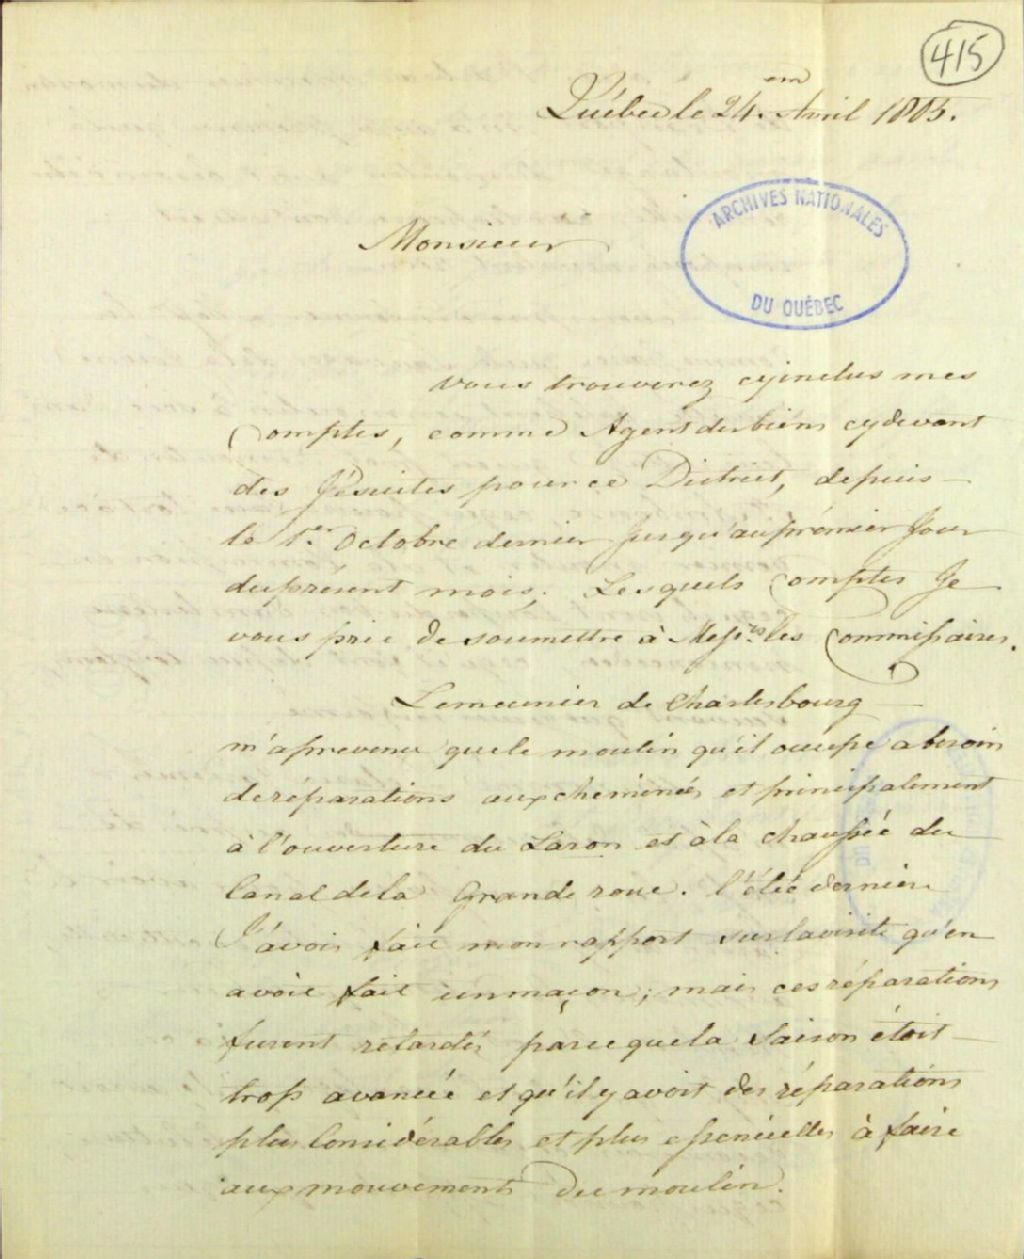 415
Québec le 24.em Avril 1805.
ARCHIVES NATIONALES
DU QUÉBEC
Monsieur
vous trouverez cyinclus mes
Comptes, comme Agent des biens cydevant
des Jésuites pour ce District, depuis
le 1.er Octobre dernier jusqu'au prémier Jour
du présent mois; Lesquels Comptes Je
vous prie de soumettre à Messrs. les Commissaires.
Le meunier de Charlesbourg
m'a prevenu que le moulin qu'il occupe a besoin
de réparations aux cheminées et principalement
à l'ouverture du Laron et à la chaussée du
Canal de la Grande roue. l'été dernier
J'avois fait mon rapport sur la visite qu'en
avoit fait un maçon; mais ces réparations
furent retardés parceque la Saison étoit
trop avancéé et qu'il y avoit des réparations
plus Considérables et plus essencielles à faire
aux mouvements du moulin.